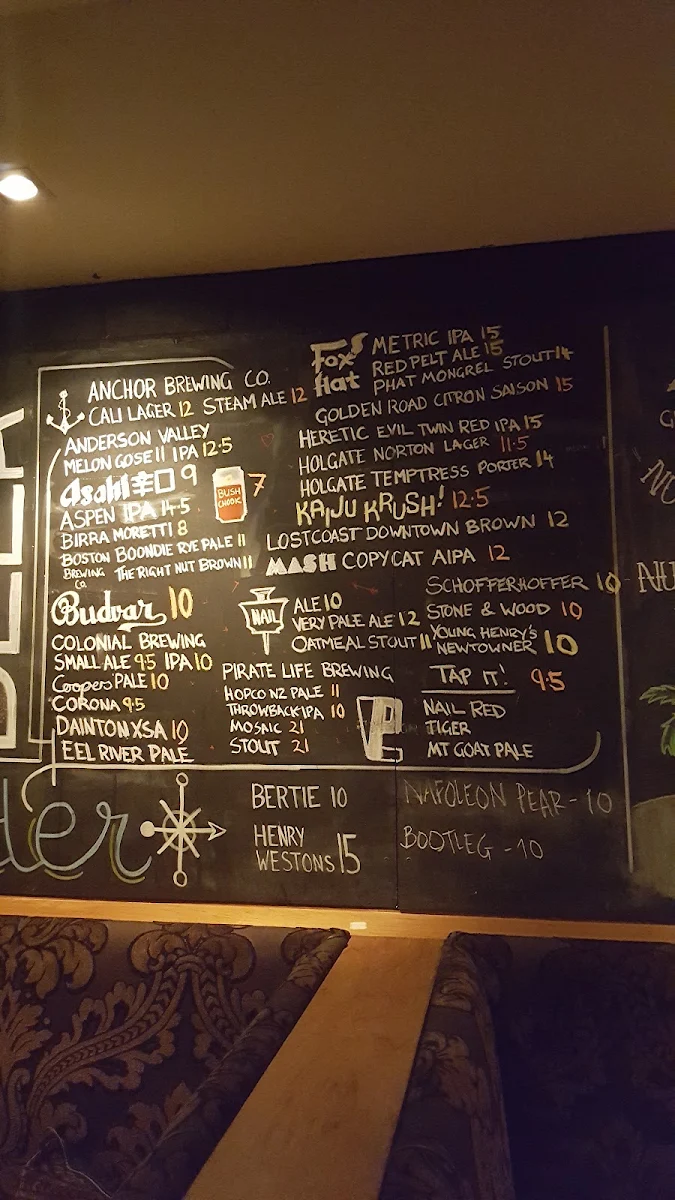 ANCHOR BREWING CO.
CALI LAGER 12 STEAM ALE 12
ANDERSON VALLEY
MELON GOSE 11 IPA 12.5
Asahi 9
ASPEN IPA 14.5
BIRRA MORETTI 8
BOSTON BREWING CO BOONDIE RYE PALE 11
THE RIGHT NUT BROWN 11
BUSH CHOOK 7
Budvar 10
COLONIAL BREWING
SMALL ALE 9.5 IPA 10
Coopers PALE 10
CORONA 9.5
DAINTON XSA 10
EEL RIVER PALE
Fox Hat
METRIC IPA 15
RED PELT ALE 15
PHAT MONGREL STOUT 14
GOLDEN ROAD CITRON SAISON 15
HERETIC EVIL TWIN RED IPA 15
HOLGATE NORTON LAGER 11.5
HOLGATE TEMPTRESS PORTER 14
KAIJU KRUSH! 12.5
LOSTCOAST DOWNTOWN BROWN 12
MASH COPYCAT AIPA 12
NAIL
ALE 10
VERY PALE ALE 12
OATMEAL STOUT 11
PIRATE LIFE BREWING
HOPCO NZ PALE 11
THROWBACK IPA 10
MOSAIC 21
STOUT 21
SCHOFFERHOFFER 10
STONE & WOOD 10
YOUNG HENRY'S
NEWTOWNER 10
TAP IT! 9.5
NAIL RED
TIGER
MT GOAT PALE
der
BERTIE 10
HENRY
WESTONS 15
NAPOLEON PEAR - 10
BOOTLEG - 10